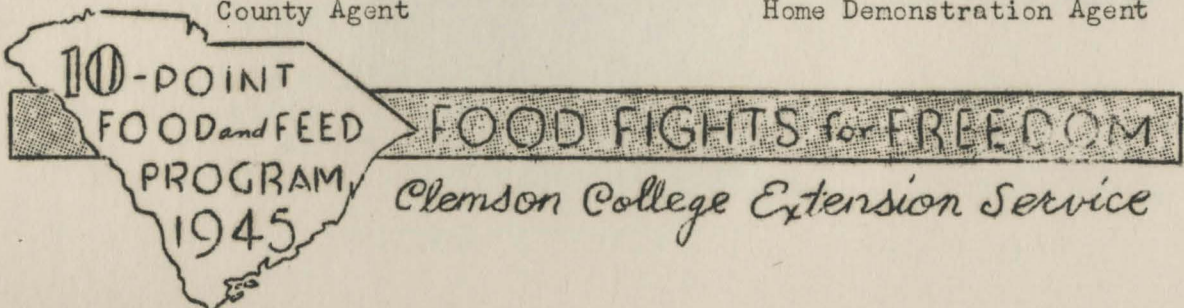 County Agent Home Demonstration Agent
10-POINT
FOOD and FEED
PROGRAM,
1945
FOOD FIGHTS for FREEDOM
Clemson College Extension Service